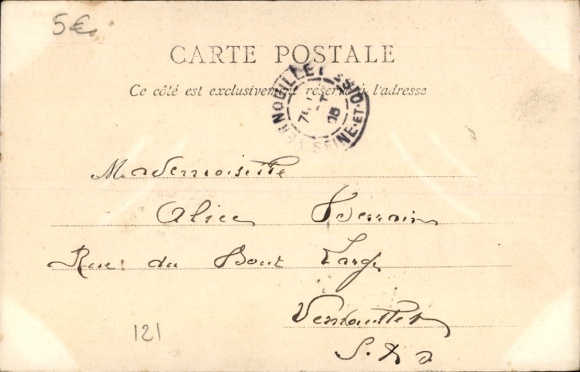 5€
CARTE POSTALE
Ce côté est exclusivement réservé à l'adresse
VERNOUILLET SEINE-ET-OISE
Mademoiselle
Alice
Rue du Bout Large
Vernouillet
S. &
121